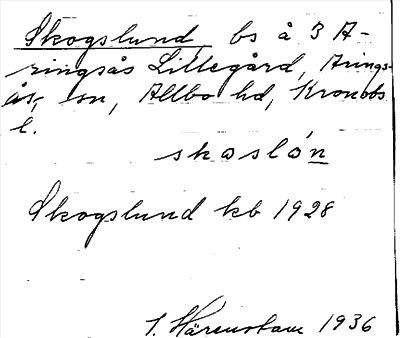 Skogslund, bs å 3 A-
ringsås Lillegård, Arings-
ås sn, Allbo hd, Kronobs
l.
skɑslón
Skogslund kb 1928
I. Härenstam 1936